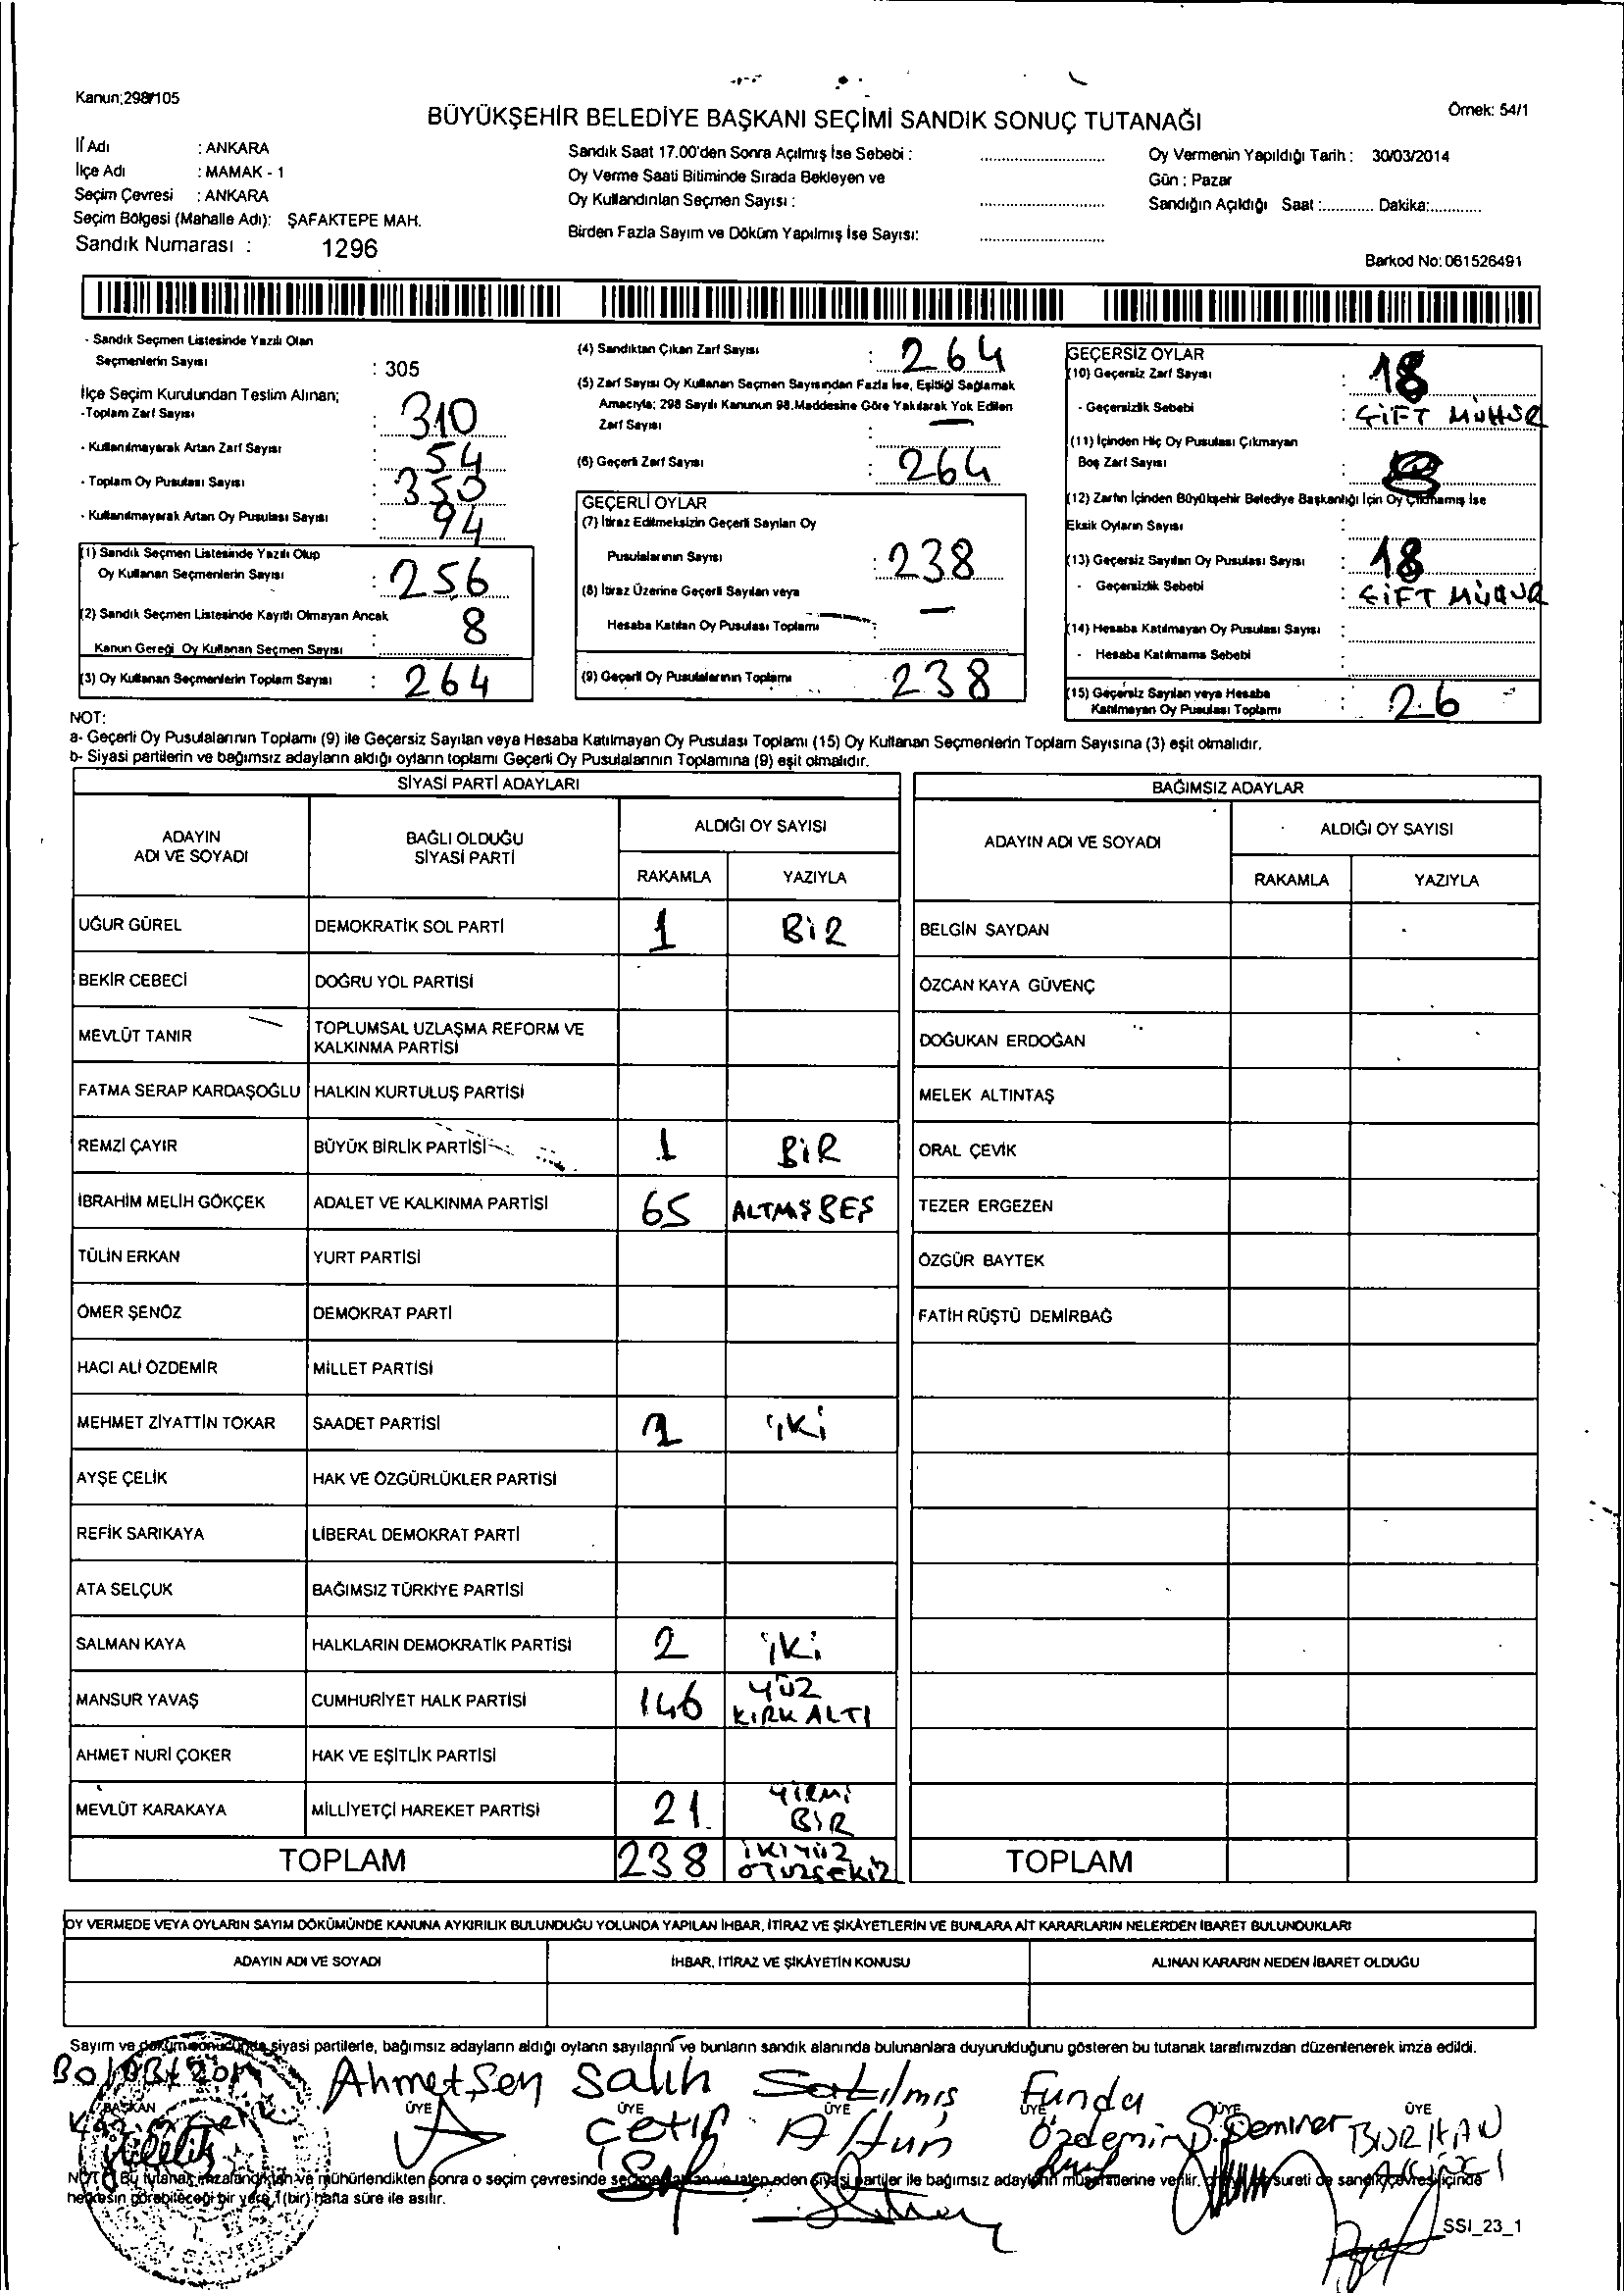 Kanun;298/105
Örnek: 54/1
BÜYÜKŞEHİR BELEDİYE BAŞKANI SEÇİMİ SANDIK SONUÇ TUTANAĞI
İl Adı : ANKARA
İlçe Adı : MAMAK - 1
Seçim Çevresi : ANKARA
Seçim Bölgesi (Mahalle Adı): ŞAFAKTEPE MAH.
Sandık Numarası : 1296
Sandık Saat 17.00'den Sonra Açılmış İse Sebebi :
Oy Verme Saati Bitiminde Sırada Bekleyen ve
Oy Kullandırılan Seçmen Sayısı :
Birden Fazla Sayım ve Döküm Yapılmış İse Sayısı:
Oy Vermenin Yapıldığı Tarih : 30/03/2014
Gün : Pazar
Sandığın Açıldığı Saat :............ Dakika:............
Barkod No: 061526491
- Sandık Seçmen Listesinde Yazılı Olan
Seçmenlerin Sayısı : 305
İlçe Seçim Kurulundan Teslim Alınan;
-Toplam Zarf Sayısı : 310
- Kullanılmayarak Artan Zarf Sayısı : 54
- Toplam Oy Pusulası Sayısı : 350
- Kullanılmayarak Artan Oy Pusulası Sayısı : 94
(1) Sandık Seçmen Listesinde Yazılı Olup
Oy Kullanan Seçmenlerin Sayısı : 256
(2) Sandık Seçmen Listesinde Kayıtlı Olmayan Ancak
Kanun Gereği Oy Kullanan Seçmen Sayısı : 8
(3) Oy Kullanan Seçmenlerin Toplam Sayısı : 264
(4) Sandıktan Çıkan Zarf Sayısı : 264
(5) Zarf Sayısı Oy Kullanan Seçmen Sayısından Fazla İse, Eşitliği Sağlamak
Amacıyla; 298 Sayılı Kanunun 98.Maddesine Göre Yakılarak Yok Edilen
Zarf Sayısı : —
(6) Geçerli Zarf Sayısı : 264
GEÇERLİ OYLAR
(7) İtiraz Edilmeksizin Geçerli Sayılan Oy
Pusulalarının Sayısı : 238
(8) İtiraz Üzerine Geçerli Sayılan veya
Hesaba Katılan Oy Pusulası Toplamı : —
(9) Geçerli Oy Pusulalarının Toplamı 238
GEÇERSİZ OYLAR
(10) Geçersiz Zarf Sayısı : 18
- Geçersizlik Sebebi : ÇİFT MÜHÜR
(11) İçinden Hiç Oy Pusulası Çıkmayan
Boş Zarf Sayısı :
(12) Zarfın İçinden Büyükşehir Belediye Başkanlığı İçin Oy Çıkmamış İse
Eksik Oyların Sayısı :
(13) Geçersiz Sayılan Oy Pusulası Sayısı : 18
- Geçersizlik Sebebi : ÇİFT MÜHÜR
(14) Hesaba Katılmayan Oy Pusulası Sayısı :
- Hesaba Katılmama Sebebi :
(15) Geçersiz Sayılan veya Hesaba
Katılmayan Oy Pusulası Toplamı : 26
NOT:
a- Geçerli Oy Pusulalarının Toplamı (9) ile Geçersiz Sayılan veya Hesaba Katılmayan Oy Pusulası Toplamı (15) Oy Kullanan Seçmenlerin Toplam Sayısına (3) eşit olmalıdır.
b- Siyasi partilerin ve bağımsız adayların aldığı oyların toplamı Geçerli Oy Pusulalarının Toplamına (9) eşit olmalıdır.
SİYASİ PARTİ ADAYLARI
ADAYIN ADI VE SOYADI
BAĞLI OLDUĞU SİYASİ PARTİ
ALDIĞI OY SAYISI
RAKAMLA YAZIYLA
UĞUR GÜREL DEMOKRATİK SOL PARTİ 1 BİR
BEKİR CEBECİ DOĞRU YOL PARTİSİ
MEVLÜT TANIR TOPLUMSAL UZLAŞMA REFORM VE KALKINMA PARTİSİ
FATMA SERAP KARDAŞOĞLU HALKIN KURTULUŞ PARTİSİ
REMZİ ÇAYIR BÜYÜK BİRLİK PARTİSİ 1 BİR
İBRAHİM MELİH GÖKÇEK ADALET VE KALKINMA PARTİSİ 65 ALTMŞ BEŞ
TÜLİN ERKAN YURT PARTİSİ
ÖMER ŞENÖZ DEMOKRAT PARTİ
HACI ALİ ÖZDEMİR MİLLET PARTİSİ
MEHMET ZİYATTİN TOKAR SAADET PARTİSİ 2 İKİ
AYŞE ÇELİK HAK VE ÖZGÜRLÜKLER PARTİSİ
REFİK SARIKAYA LİBERAL DEMOKRAT PARTİ
ATA SELÇUK BAĞIMSIZ TÜRKİYE PARTİSİ
SALMAN KAYA HALKLARIN DEMOKRATİK PARTİSİ 2 İKİ
MANSUR YAVAŞ CUMHURİYET HALK PARTİSİ 146 YÜZ KIRK ALTI
AHMET NURİ ÇOKER HAK VE EŞİTLİK PARTİSİ
MEVLÜT KARAKAYA MİLLİYETÇİ HAREKET PARTİSİ 21 YİRMİ BİR
TOPLAM 238 İKİ YÜZ OTUZSEKİZ
BAĞIMSIZ ADAYLAR
ADAYIN ADI VE SOYADI
ALDIĞI OY SAYISI
RAKAMLA YAZIYLA
BELGİN SAYDAN
ÖZCAN KAYA GÜVENÇ
DOĞUKAN ERDOĞAN
MELEK ALTINTAŞ
ORAL ÇEVİK
TEZER ERGEZEN
ÖZGÜR BAYTEK
FATİH RÜŞTÜ DEMİRBAĞ
TOPLAM
OY VERMEDE VEYA OYLARIN SAYIM DÖKÜMÜNDE KANUNA AYKIRILIK BULUNDUĞU YOLUNDA YAPILAN İHBAR, İTİRAZ VE ŞİKÂYETLERİN VE BUNLARA AİT KARARLARIN NELERDEN İBARET BULUNDUKLARI
ADAYIN ADI VE SOYADI
İHBAR, İTİRAZ VE ŞİKÂYETİN KONUSU
ALINAN KARARIN NEDEN İBARET OLDUĞU
Sayım ve döküm sonucunda siyasi partilerle, bağımsız adayların aldığı oyların sayılarını ve bunların sandık alanında bulunanlara duyurulduğunu gösteren bu tutanak tarafımızdan düzenlenerek imza edildi.
BAŞKAN
Ahmet Şen ÜYE
Salih Çetin ÜYE
Satılmış Altun ÜYE
Funda Özdemir ÜYE
S. Demirer ÜYE
BURHAN AKINCI ÜYE
NOT: Bu tutanak imzalandıktan ve mühürlendikten sonra o seçim çevresinde seçime katılan ve talep eden siyasi partiler ile bağımsız adayların müşahitlerine verilir, sureti de sandık çevresi içinde
herkesin görebileceği bir yere 1(bir) hafta süre ile asılır.
SSI_23_1